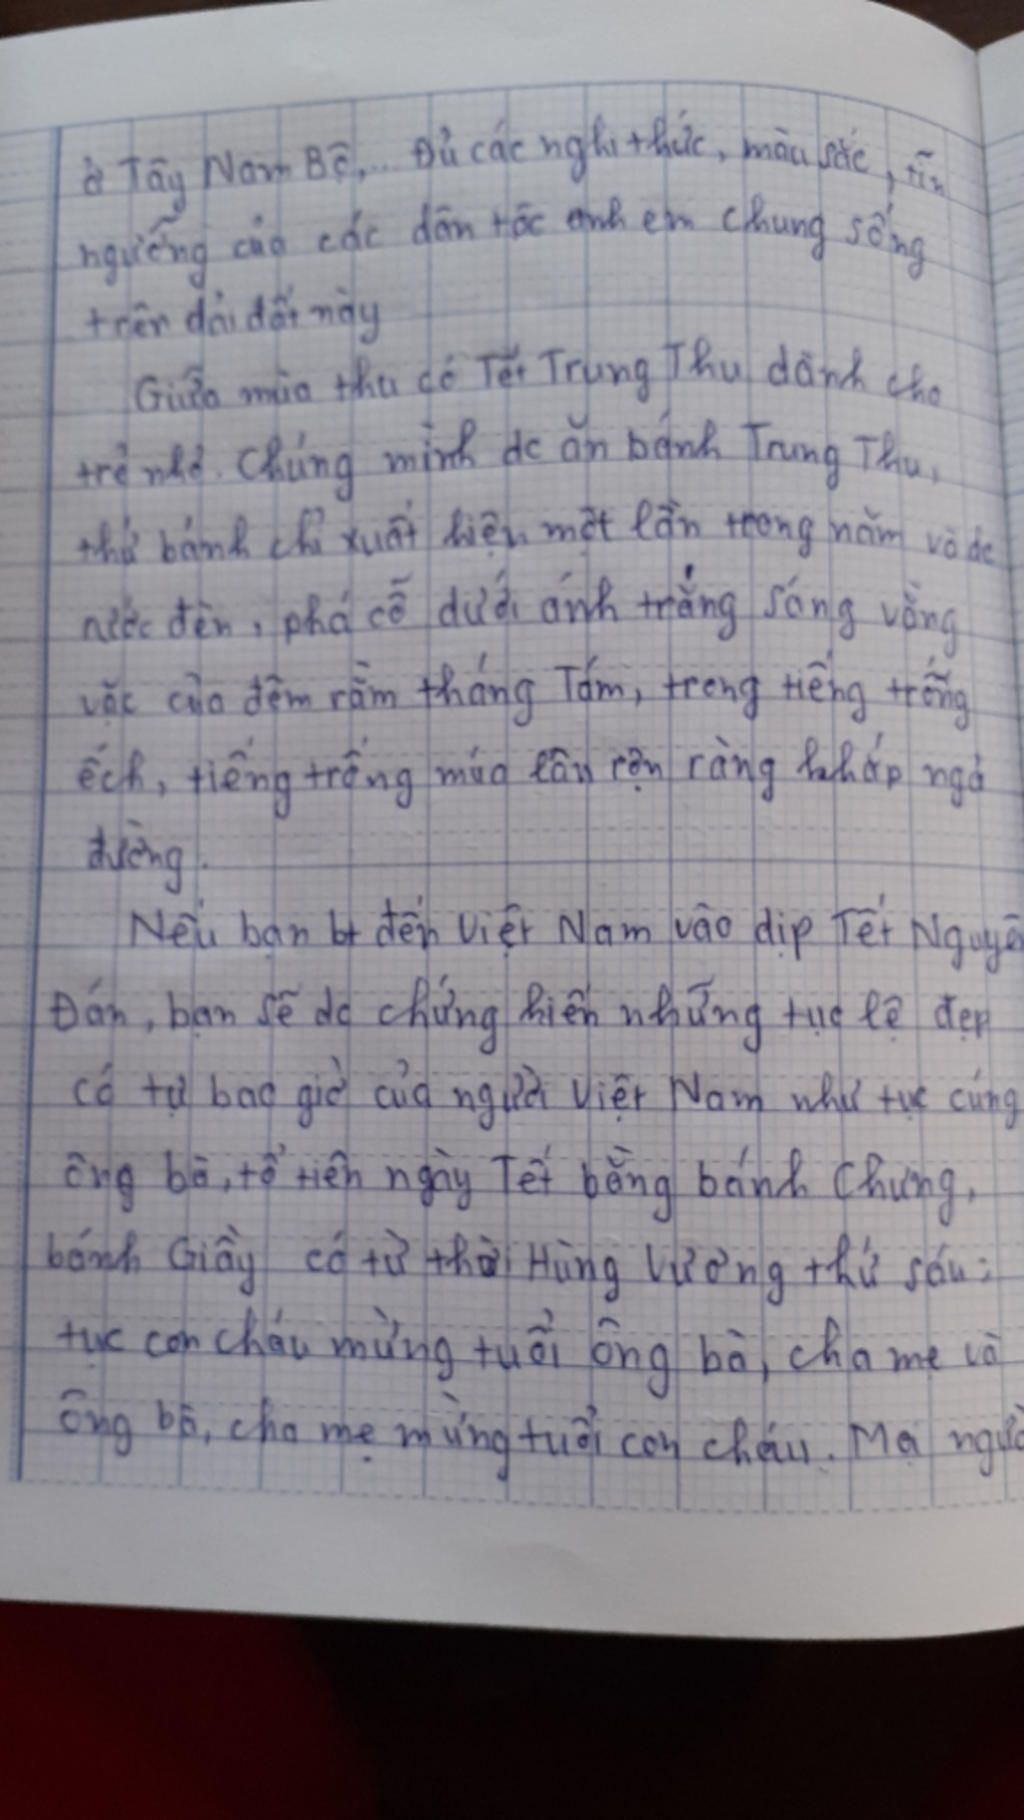 ở Tây Nam Bộ,... Đủ các nghi thức, màu sắc, tín
ngưỡng của các dân tộc anh em chung sống
trên dải đất này
Giữa mùa thu có Tết Trung Thu dành cho
trẻ nhỏ. Chúng mình đc ăn bánh Trung Thu,
thứ bánh chỉ xuất hiện một lần trong năm và đc
rước đèn, phá cỗ dưới ánh trăng sáng vằng
vặc của đêm rằm tháng Tám, trong tiếng trống
ếch, tiếng trống múa lân rộn ràng khắp ngả
đường.
Nếu bạn đến Việt Nam vào dịp Tết Nguyê
Đán, bạn sẽ đc chứng kiến những tục lệ đẹp
có tự bao giờ của người Việt Nam như tục cúng
ông bà, tổ tiên ngày Tết bằng bánh Chưng,
bánh Giầy có từ thời Hùng Vương thứ sáu;
tục con cháu mừng tuổi ông bà, cha mẹ và
ông bà, cha mẹ mừng tuổi con cháu. Mọi ngườ